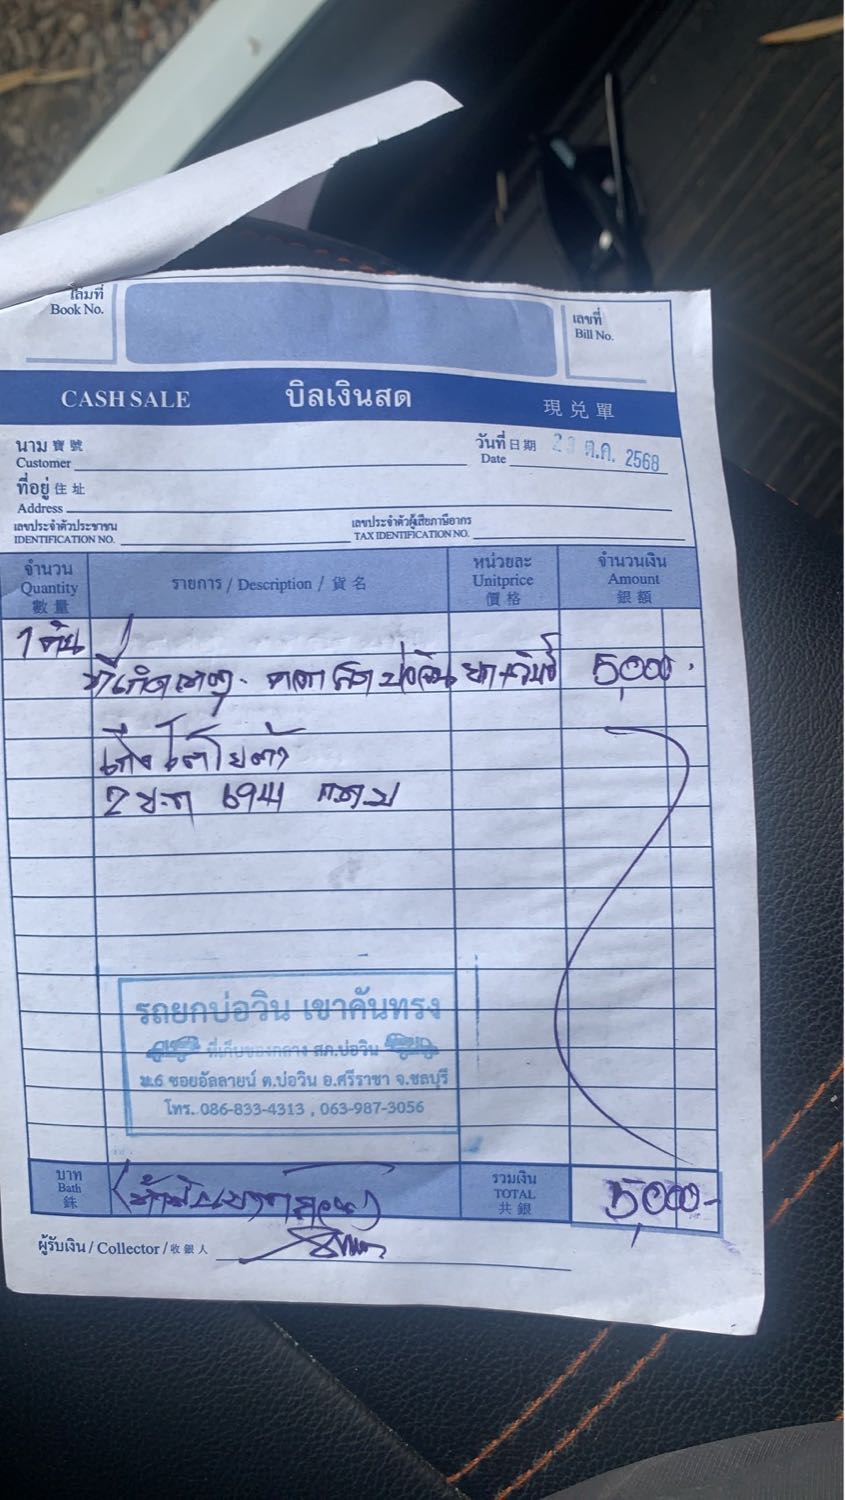 เล่มที่
Book No.
เลขที่
Bill No.
CASH SALE บิลเงินสด 現兌單
นาม寶號
Customer
วันที่日期
Date ต.ค. 2568
ที่อยู่住址
Address
เลขประจำตัวประชาชน
IDENTIFICATION NO.
เลขประจำตัวผู้เสียภาษีอากร
TAX IDENTIFICATION NO.
จำนวน
Quantity
數量
รายการ / Description / 貨名
หน่วยละ
Unitprice
價格
จำนวนเงิน
Amount
銀額
1 คัน
ที่เกิดเหตุ. 5,000.
เก๋ง โตโยต้า
6941
รถยกบ่อวิน เขาคันทรง
ที่เก็บของกลาง สภ.บ่อวิน
ม.6 ซอยอัลลายน์ ต.บ่อวิน อ.ศรีราชา จ.ชลบุรี
โทร. 086-833-4313 , 063-987-3056
บาท
Bath
銖
(ห้าพันบาทถ้วน)
รวมเงิน
TOTAL
共銀
5,000-
ผู้รับเงิน / Collector / 收銀人